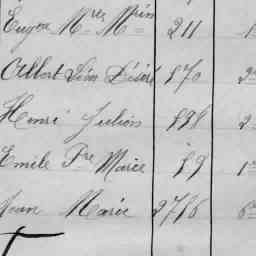 Eugen Mres Mrin 211 1
Albert Léon Désiré 870 2
Henri Julien 898 2
Emile Fre Marie 89 1
Jean Marie 2766 6